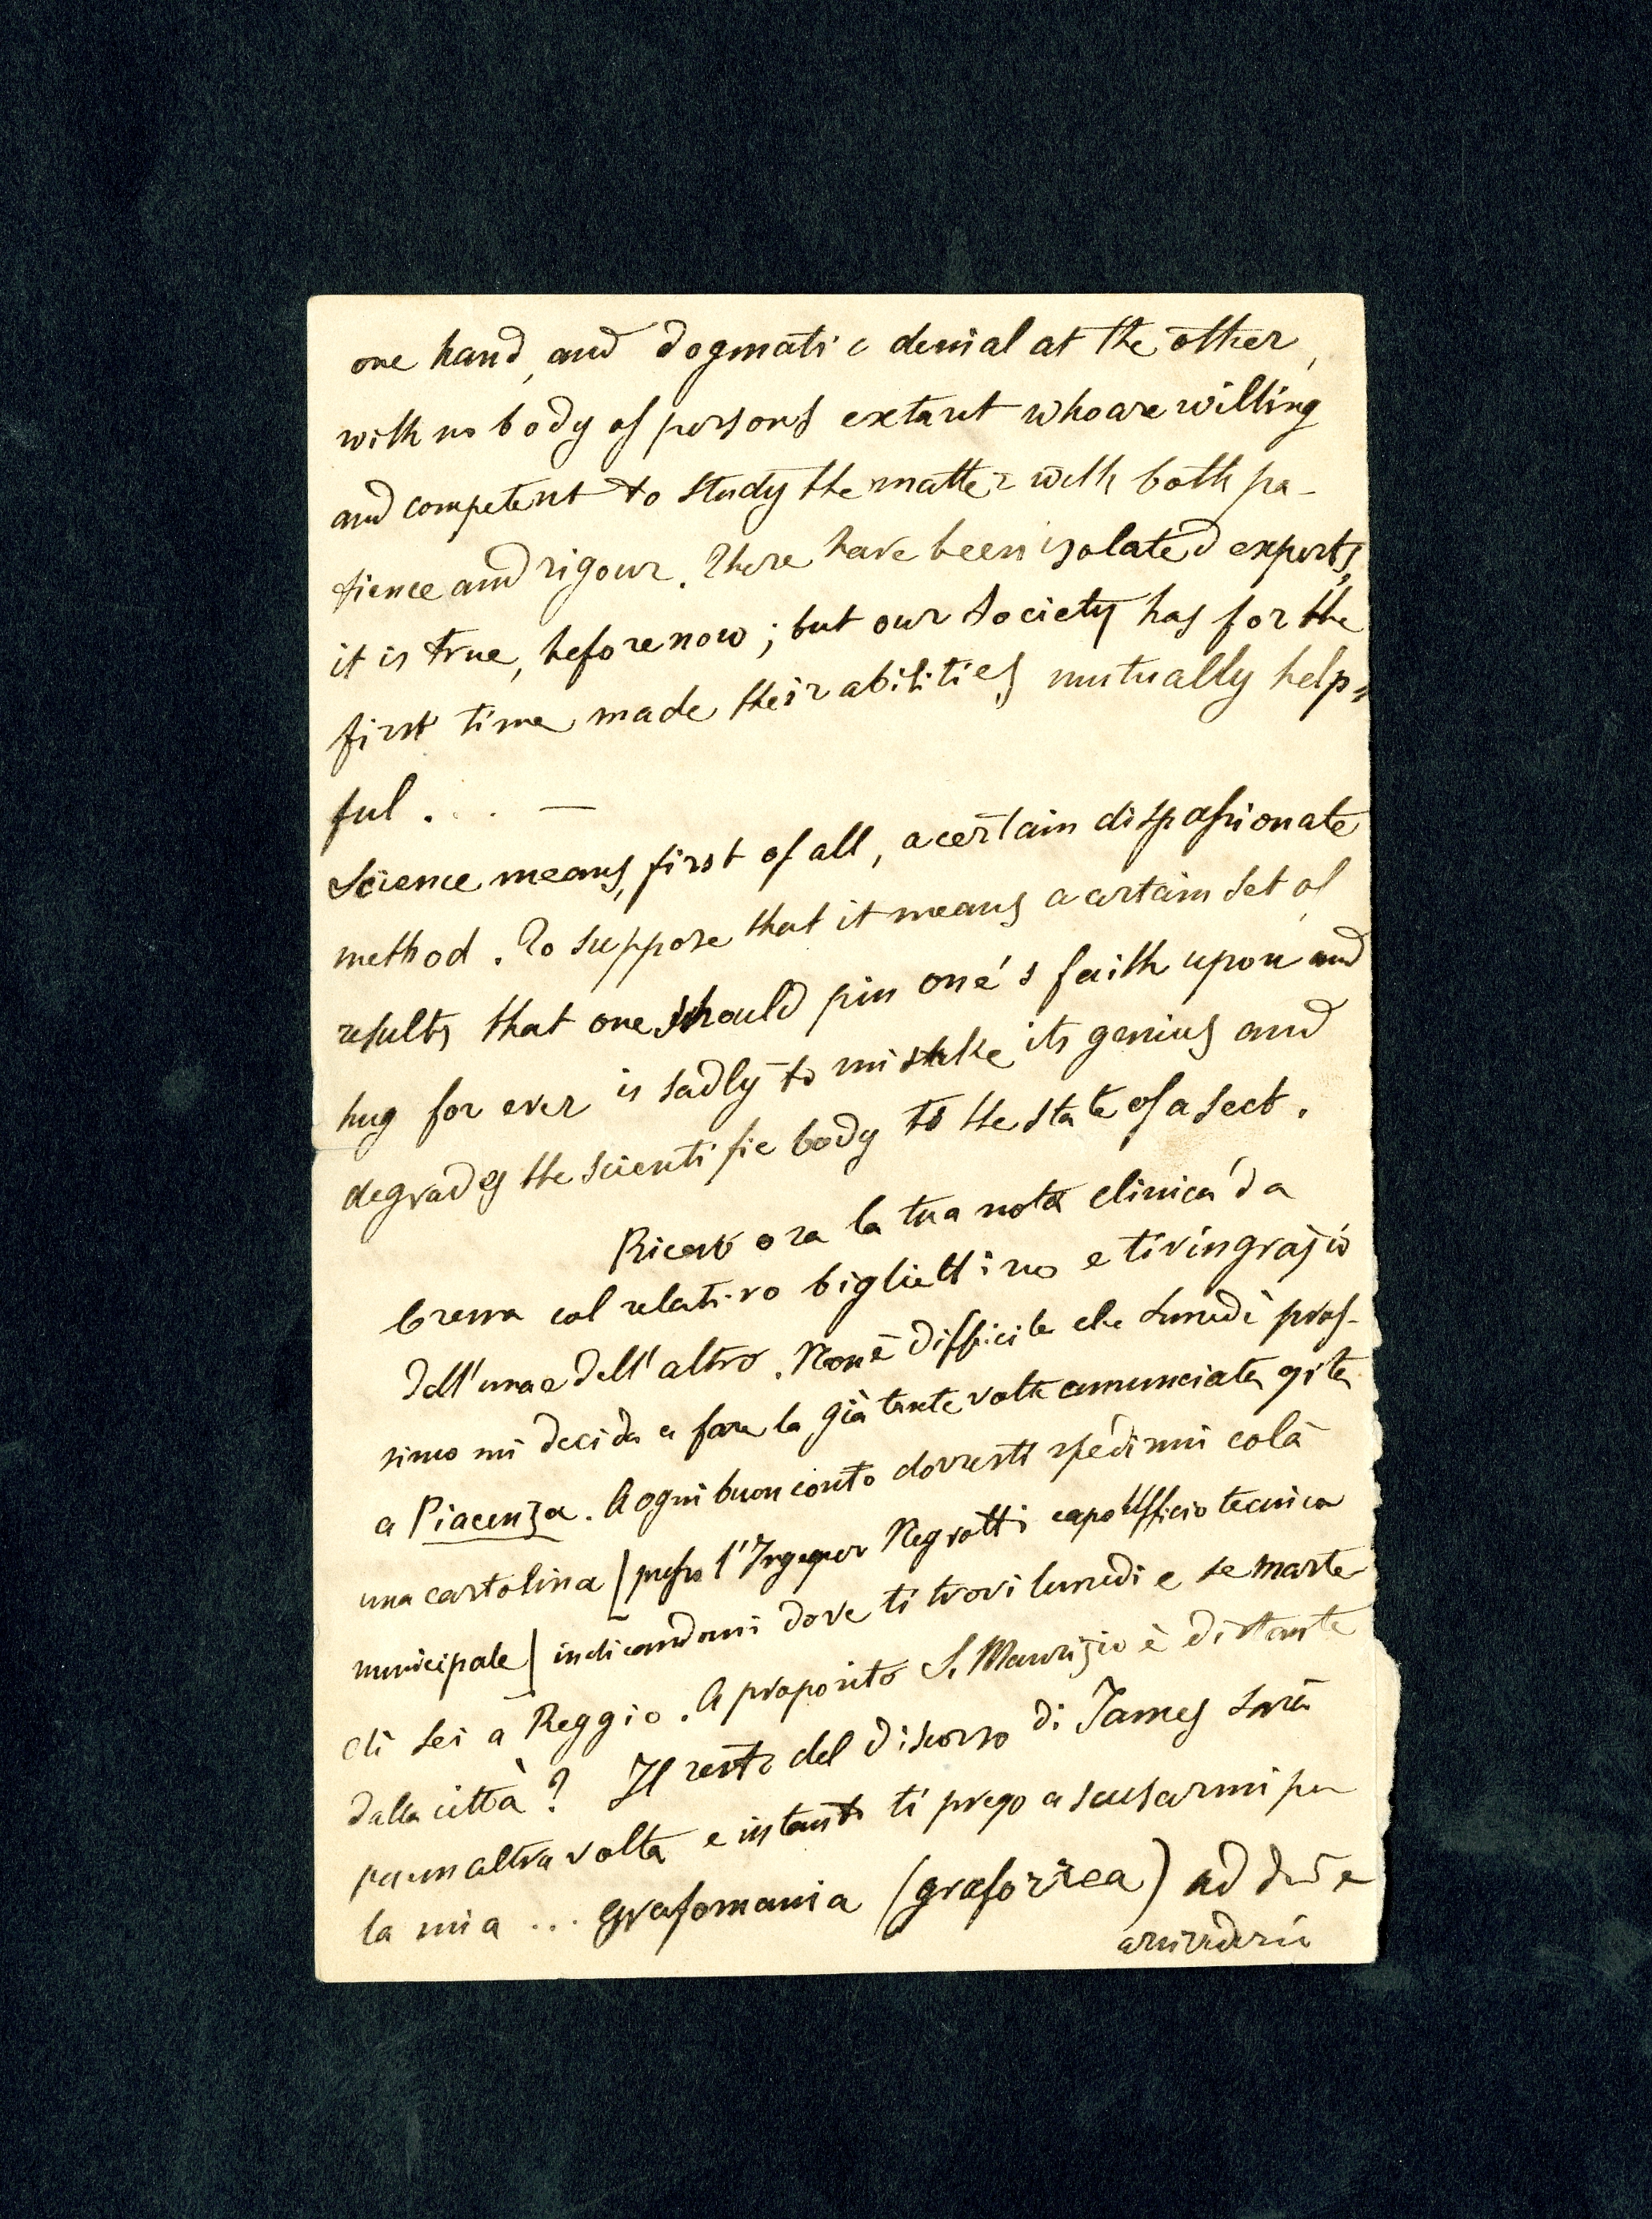 one hand, and dogmatic denial at the other,
with no body of persons extant who are willing
and competent to study the matter with both pa-
tience and rigour. There have been isolated experts,
it is true, before now; but our Society has for the
first time made their abilities mutually help=
ful. . . —
Science means, first of all, a certain dispassionate
method. To suppose that it means a certain set of
results that one should pin one's faith upon and
hug for ever is sadly to mistake its genius and
degrades the scientific body to the state of a sect.
Ricevo ora la tua nota clinica da
Crema col relativo bigliettino e ti ringrazio
dell'una e dell'altro. Non è difficile che Lunedì pros-
simo mi decida a fare la già tante volte annunciata gita
a Piacenza. A ogni buon conto dovresti spedirmi colà
una cartolina (presso l'Ingegner Negrotti capo Ufficio tecnico
municipale) indicandomi dove ti trovi lunedì e se marte
dì sei a Reggio. A proposito S. Maurizio è distante
dalla città? Il resto del discorso di James sarà
per un altra volta e intanto ti prego a scusarmi per
la mia ... grafomania (graforrea) ed
arrivederci